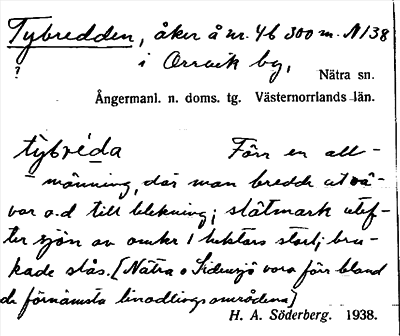 Tybredden, åker å nr. 46 300 m. N 138
? i Orrvik by,
Nätra sn.
Ångermanl. n. doms. tg. Västernorrlands län.
týbrèda Förr en all-
männing, där man bredde ut vä-
var o.d till blekning; slåtmark utef-
ter sjön av omkr 1 hektars storl; bru-
kade slås. [Nätra o Sidensjö voro förr bland
de förnämsta linodlingsområdena]
H. A. Söderberg. 1938.